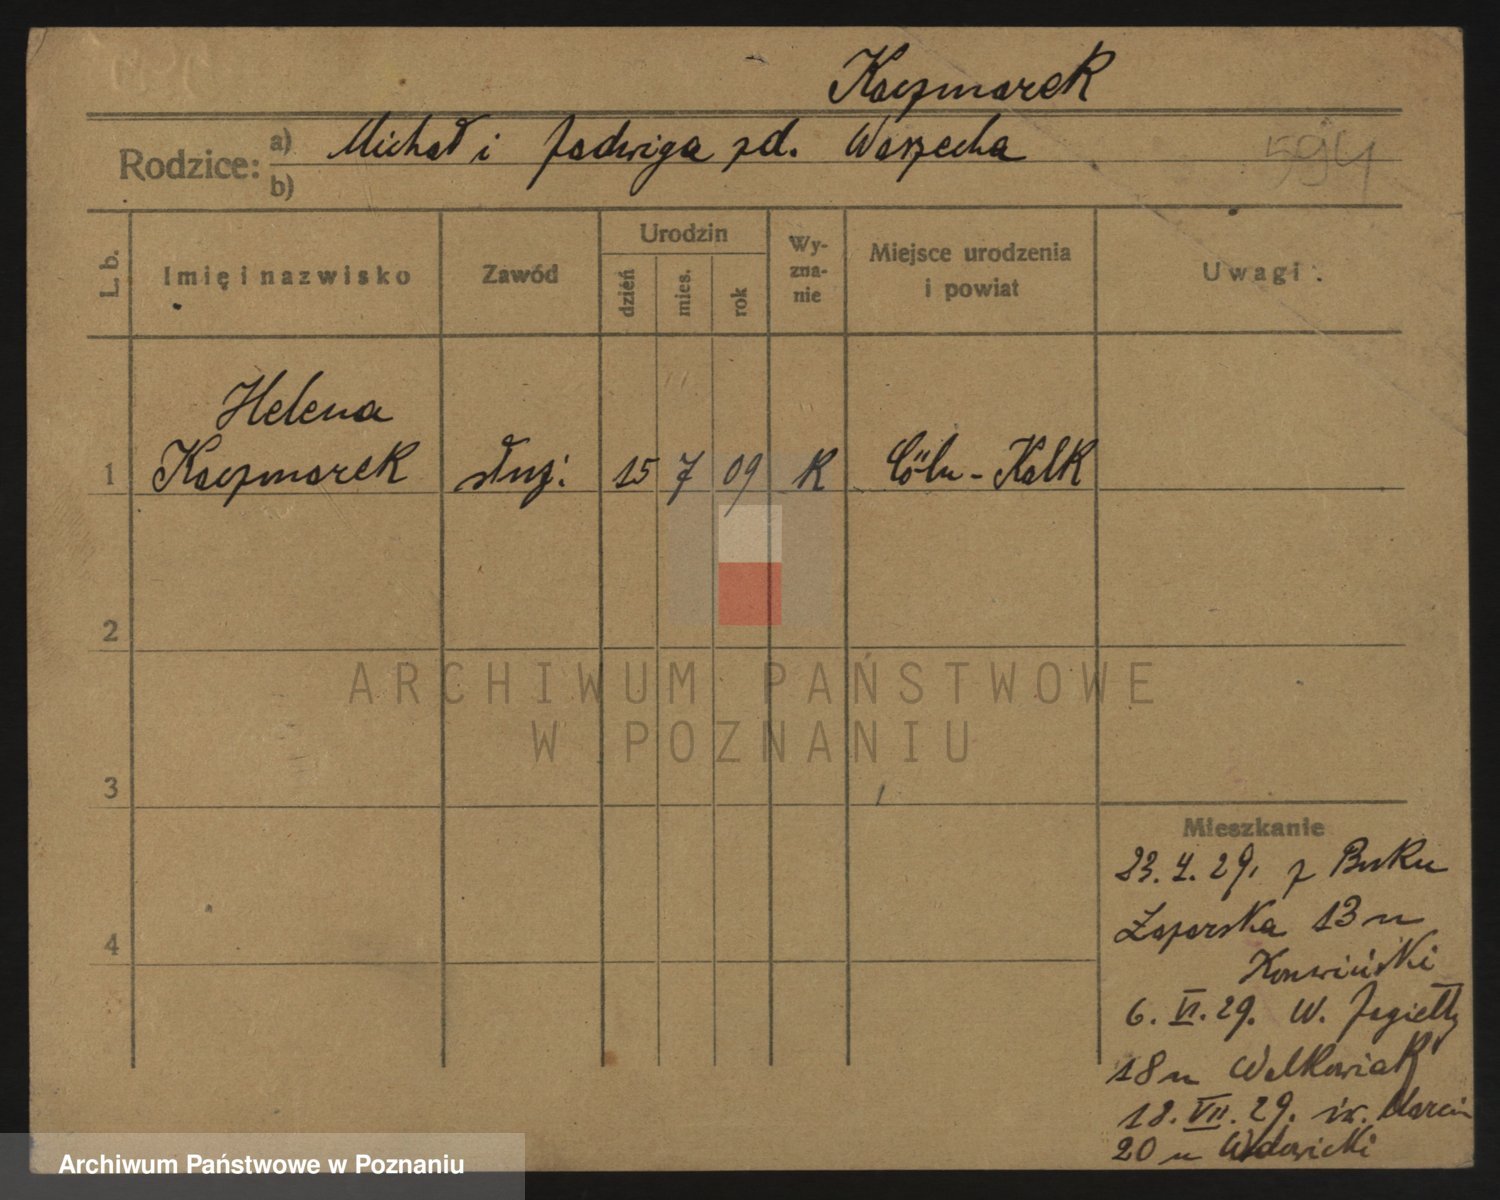 Kaczmarek
Rodzice: a) Michał i Jadwiga zd. Waszecha
b)
594
L. b. Imię i nazwisko Zawód Urodzin dzień mies. rok Wyznanie Miejsce urodzenia i powiat Uwagi
Helena
1 Kaczmarek służ: 15 7 09 K Cöln - Kalk
2
ARCHIWUM PAŃSTWOWE
W POZNANIU
3
Mieszkanie
23. 4. 29. z Buku
13 u
4
6. VI. 29. W. Jagiełły
18 u Walkowiak
18. VII. 29. św. Marcin
20 u Wdowicki
Archiwum Państwowe w Poznaniu